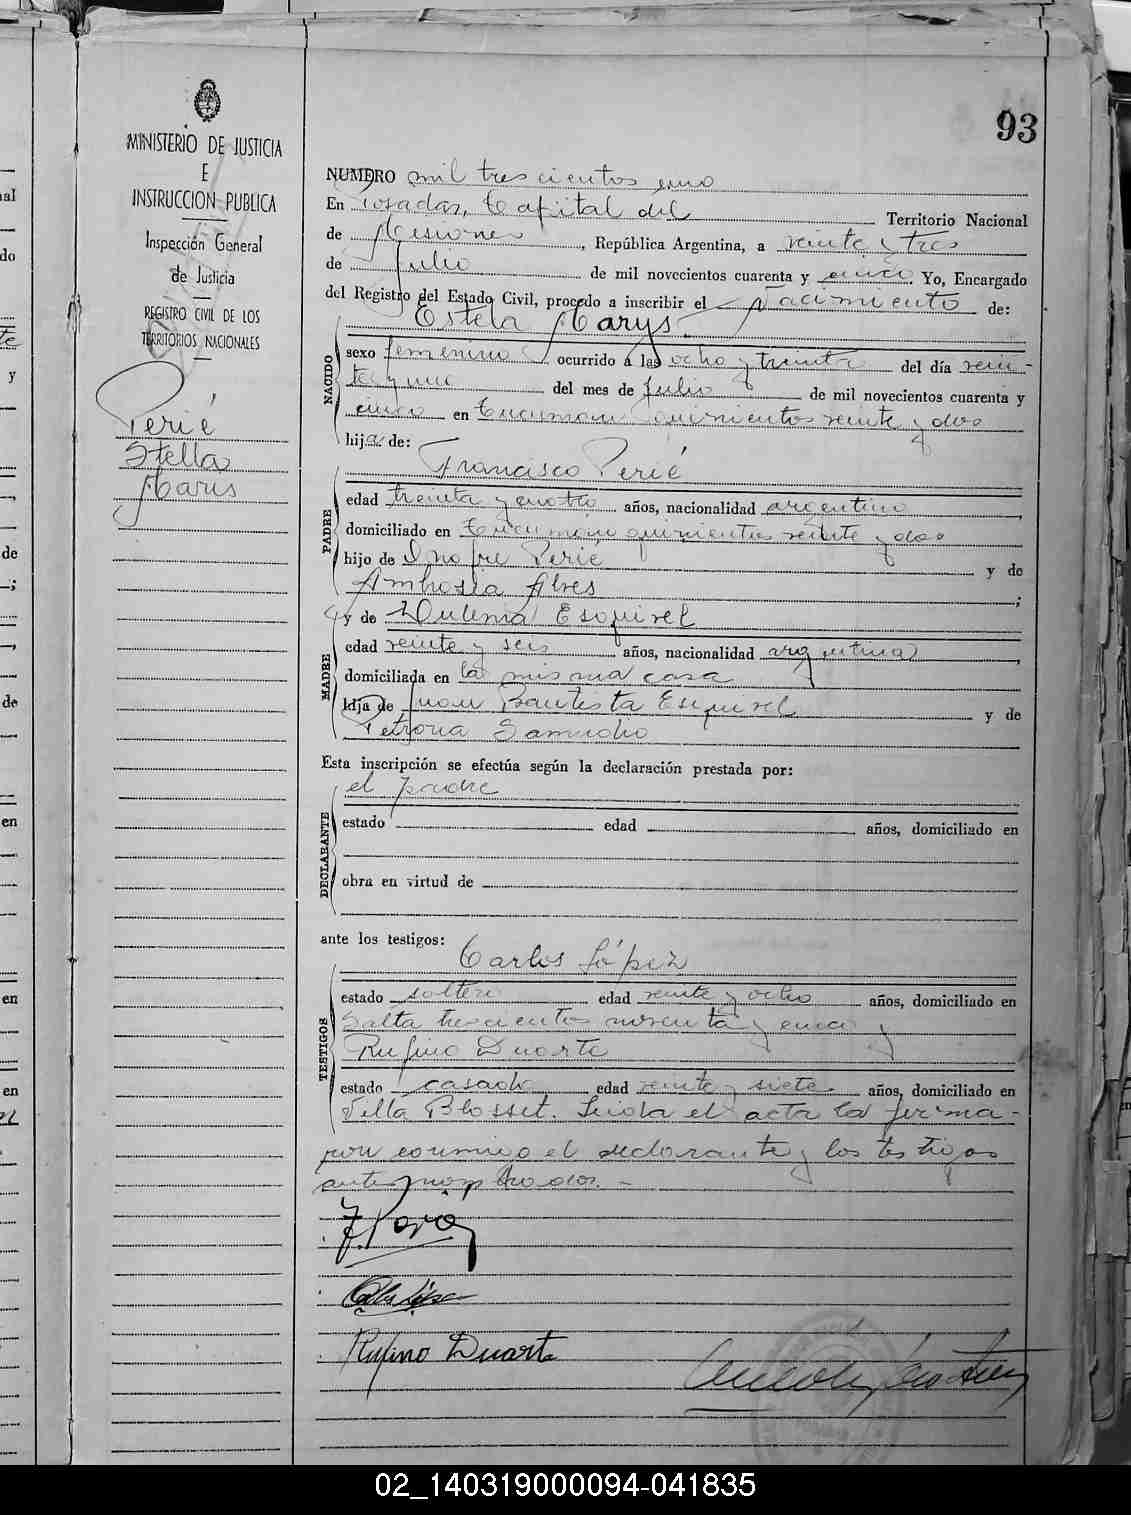 93
MINISTERIO DE JUSTICIA
E
INSTRUCCION PUBLICA
Inspección General
de Justicia
REGISTRO CIVIL DE LOS
TERRITORIOS NACIONALES
Perié
Stella
Maris
NUMERO mil trescientos uno
En Posadas, Capital del Territorio Nacional
de Misiones, República Argentina, a veinte y tres
de Julio de mil novecientos cuarenta y cinco Yo, Encargado
del Registro del Estado Civil, procedo a inscribir el Nacimiento de:
Estela Marys
NACIDO
sexo femenino ocurrido a las ocho y treinta del día vein-
te y uno del mes de Julio de mil novecientos cuarenta y
cinco en Tucuman quinientos veinte y dos
hija de:
Francisco Perié
PADRE
edad treinta y cuatro años, nacionalidad argentino,
domiciliado en Tucuman quinientos veinte y dos
hijo de Onofre Perié y de
Ambrosia Alves;
y de Dulema Esquivel
MADRE
edad veinte y seis años, nacionalidad argentina,
domiciliada en la misma casa
hija de Juan Bautista Esquivel y de
Petrona Samudio
Esta inscripción se efectúa según la declaración prestada por:
el padre
DECLARANTE
estado edad años, domiciliado en
obra en virtud de
ante los testigos:
Carlos López
TESTIGOS
estado soltero edad veinte y ocho años, domiciliado en
Salta trescientos noventa y cinco y
Rufino Duarte
estado casado edad veinte y siete años, domiciliado en
Villa Blosset. Leida el acta la firma-
ron conmigo el declarante y los testigos
antes nombrados.-
Carlos López
Rufino Duarte
02_140319000094-041835